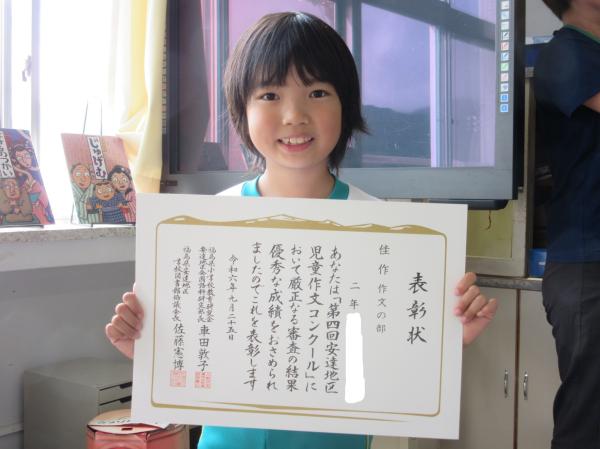 表彰状
佳作 作文の部
二年
あなたは「第四回安達地区
児童作文コンクール」に
おいて厳正なる審査の結果
優秀な成績をおさめられ
ましたのでこれを表彰します
令和六年九月二十五日
福島県小学校教育研究会
安達地区国語科研究部長 車田敦子
福島県安達地区
学校図書館協議会長 佐藤憲博
じゅげむ